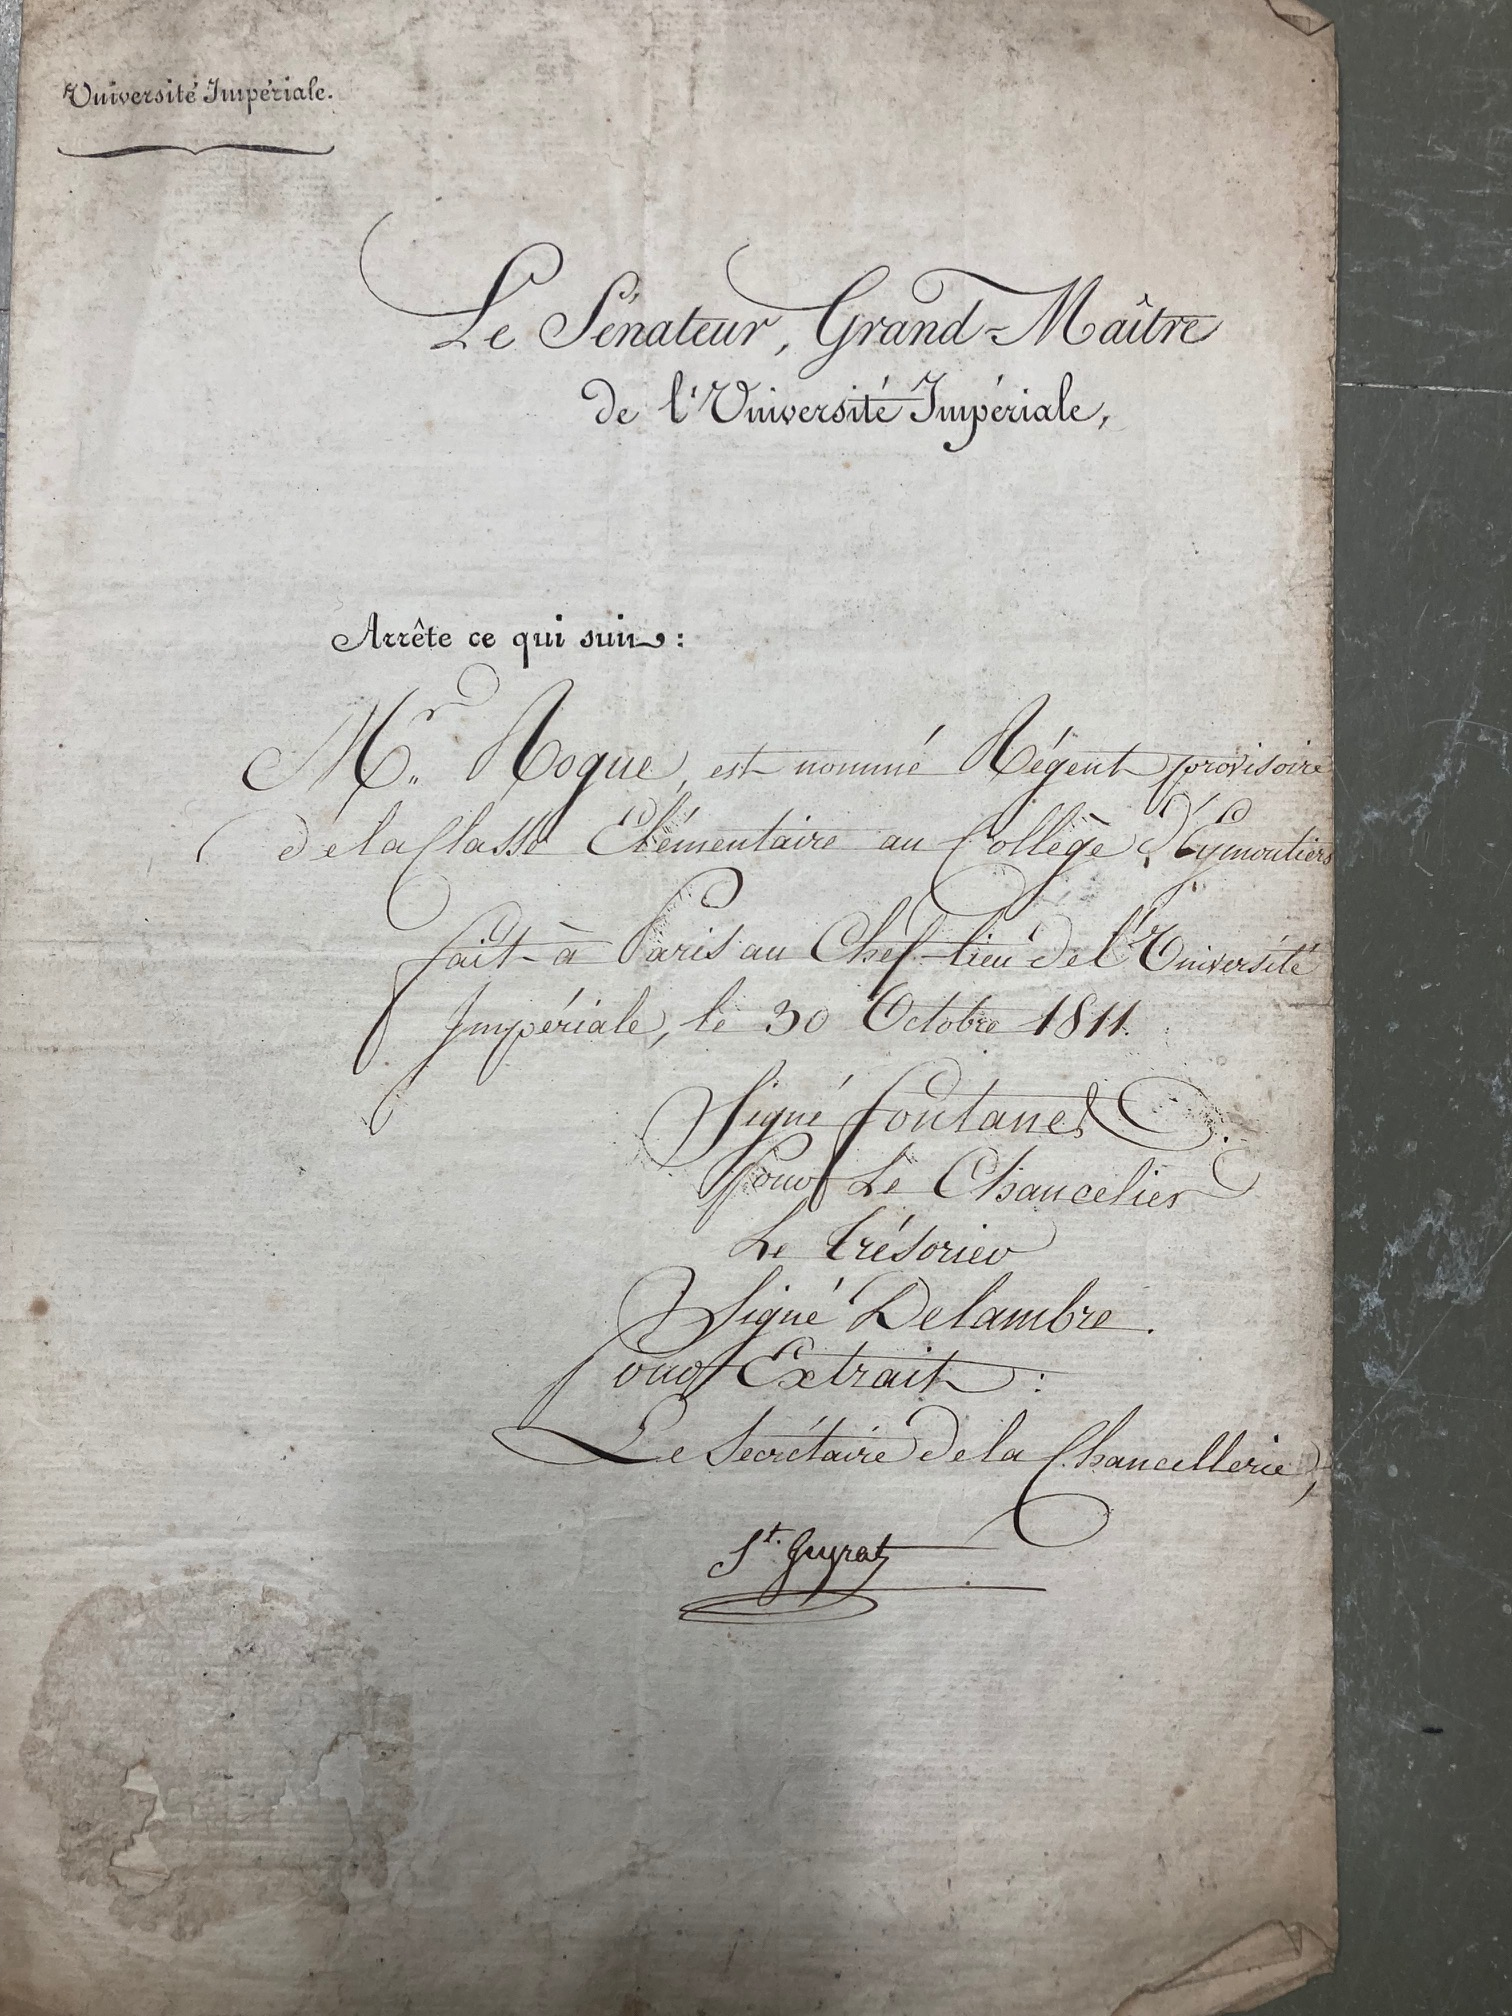 Université Impériale.
Le Sénateur, Grand-Maître
de l'Université Impériale,
Arrête ce qui suit :
Mr. Roque, est nommé Régent provisoire
de la Classe Elémentaire au Collège d'Eymoutiers
fait à Paris au Chef-lieu de l'Université
Impériale, le 30 Octobre 1811.
Signé Fontanes.
Pour Le Chancelier
Le Trésorier
Signé Delambre.
Pour Extrait :
Le Secrétaire de la Chancellerie,
St.